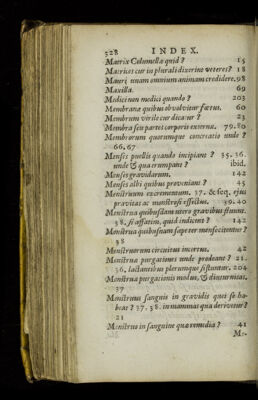 228 INDEX.
Matrix Columellæ quid? 15
Matrices cur in plurali dixerint veteres? 18
Mauri unam omnium animam credidere. 98
Maxilla. 69
Medici non medici quando? 203
Membrana quibus obvolvitur fœtus. 60
Membrum virile cur dicatur? 23
Membra seu partes corporis externæ. 79. 80
Membrorum quorumque concreatio unde?
66. 67
Menses puellis quando incipiant? 35. 36.
unde & qua erumpant? ibid.
Menses gravidarum. 142
Menses albi quibus proveniant? 45
Menstruum excrementum. 37. & seq. ejus
pravitas ac monstrosi effectus. 39. 40
Menstrua quibusdam utero gravibus fluunt.
38. si affatim, quid indicent? 142
Menstrua quibusnam sæpe ter mense cientur?
38
Menstruorum circuitus incertus. 42
Menstrua purgationes unde prodeant? 21.
36. lactantibus plerumque sistuntur. 204
Menstruæ purgationis modus, & diuturnitas.
37
Menstruus sanguis in gravidis quei se ha-
beat? 37. 38. in mammas qua derivetur?
21
Menstruo in sanguine quæ remedia? 41
Me-